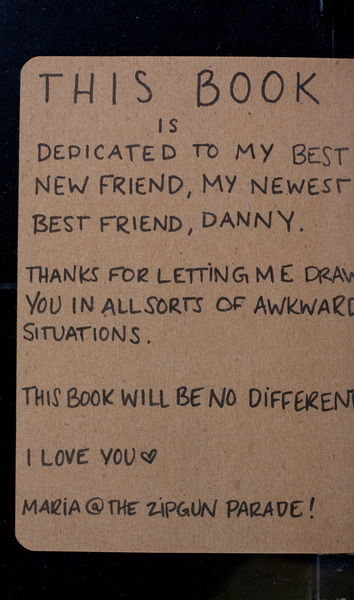 THIS BOOK
IS
DEDICATED TO MY BEST
NEW FRIEND, MY NEWEST
BEST FRIEND, DANNY.
THANKS FOR LETTING ME DRAW
YOU IN ALL SORTS OF AWKWARD
SITUATIONS.
THIS BOOK WILL BE NO DIFFERENT
I LOVE YOU♡
MARIA @ THE ZIPGUN PARADE!